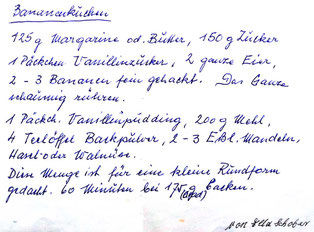 Bananenkuchen
125 g Margarine od. Butter, 150 g Zucker
1 Päckchen Vanillinzucker, 2 ganze Eier,
2 - 3 Bananen fein gehackt. Das Ganze
schaumig rühren.
1 Päckch. Vanillinpudding, 200 g Mehl,
4 Teelöffel Backpulver, 2 - 3 Eßl. Mandeln,
Hasel- oder Walnüsse.
Diese Menge ist für eine kleine Rundform
gedacht. 60 Minuten bei 175 g backen.
(Grad)
von Ella Schober